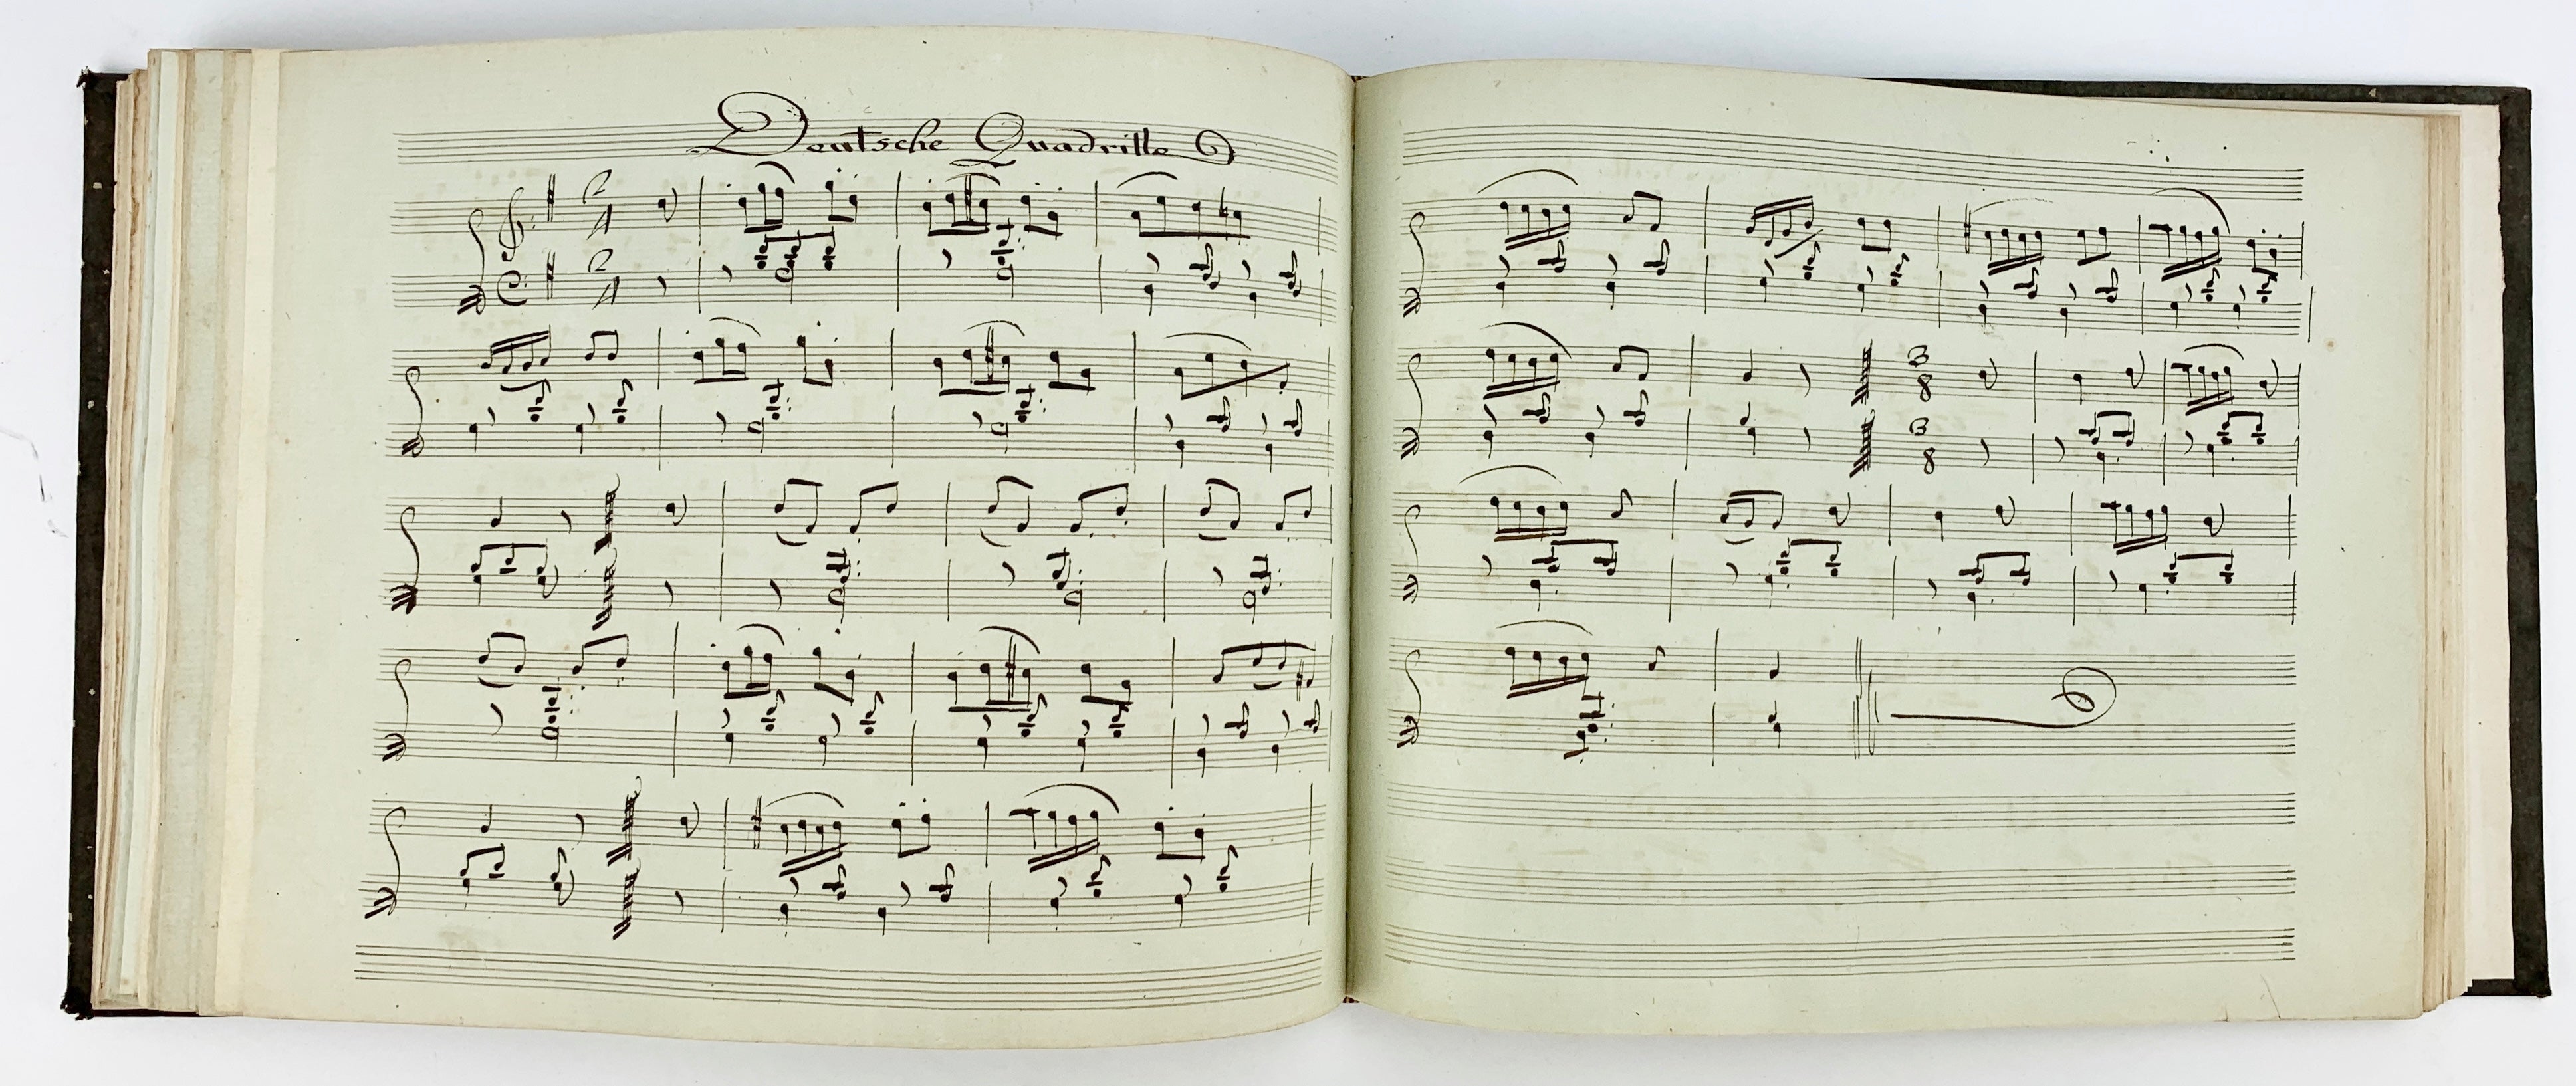 Deutsche Quadrille
2
4
2
4
3
8
3
8